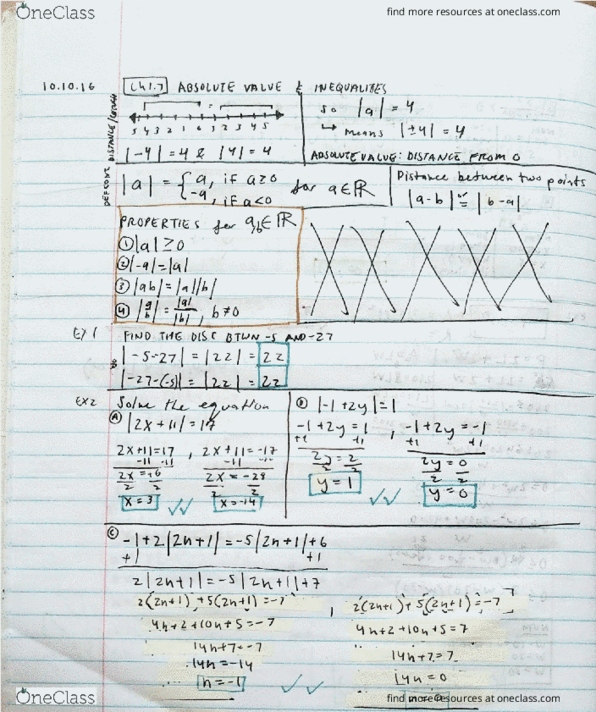 OneClass
find more resources at oneclass.com
10.10.16
Ch 1.7 ABSOLUTE VALUE & INEQUALITIES
5 4 3 2 1 0 1 2 3 4 5
|-4| = 4 & |4| = 4
so |a| = 4
↳ means |±4| = 4
ABSOLUTE VALUE: DISTANCE FROM 0
|a| = { a, if a≥0
-a, if a<0
for a∈ℝ
Distance between two points
|a-b| or = |b-a|
PROPERTIES for a,b∈ℝ
① |a| ≥ 0
② |-a| = |a|
③ |ab| = |a||b|
④ |a/b| = |a|/|b|, b≠0
EX 1 FIND THE DISC BTWN -5 AND -27
|-5-27| = |22| = 22
or
|-27-(-5)| = |22| = 22
EX2 Solve the equation
Ⓐ |2x+11| = 17
2x+11=17 , 2x+11=-17
-11 -11 -11 -11
2x=+6 2x=-28
2 2 2 2
x=3 x=-14
Ⓑ |-1+2y|=1
-1+2y=1 , -1+2y=-1
+1 +1 +1 +1
2y=2 2y=0
2 2 2 2
y=1 y=0
Ⓒ -1+2|2n+1|=-5|2n+1|+6
+1 +1
2|2n+1|=-5|2n+1|+7
2(2n+1)+5(2n+1)=-7 , 2(2n+1)+5(2n+1)=-7
4n+2+10n+5=-7 4n+2+10n+5=7
14n+7=-7 14n+7=7
14n=-14 14n=0
n=-1
OneClass
find more resources at oneclass.com